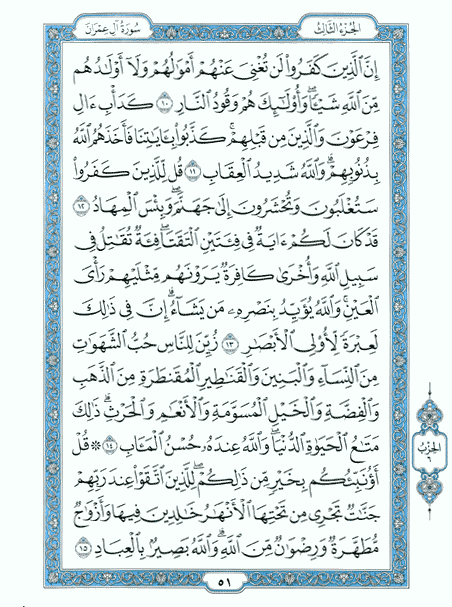 سُورَةُ آلِ عِمْرَانَ
الجُزْءُ الثَّالِثُ
إِنَّ ٱلَّذِينَ كَفَرُواْ لَن تُغْنِىَ عَنْهُمْ أَمْوَٰلُهُمْ وَلَآ أَوْلَٰدُهُم
مِّنَ ٱللَّهِ شَيْـًٔا ۖ وَأُوْلَٰٓئِكَ هُمْ وَقُودُ ٱلنَّارِ ١٠ كَدَأْبِ ءَالِ
فِرْعَوْنَ وَٱلَّذِينَ مِن قَبْلِهِمْ ۚ كَذَّبُواْ بِـَٔايَٰتِنَا فَأَخَذَهُمُ ٱللَّهُ
بِذُنُوبِهِمْ ۗ وَٱللَّهُ شَدِيدُ ٱلْعِقَابِ ١١ قُل لِّلَّذِينَ كَفَرُواْ
سَتُغْلَبُونَ وَتُحْشَرُونَ إِلَىٰ جَهَنَّمَ ۚ وَبِئْسَ ٱلْمِهَادُ ١٢
قَدْ كَانَ لَكُمْ ءَايَةٌ فِى فِئَتَيْنِ ٱلْتَقَتَا ۖ فِئَةٌ تُقَٰتِلُ فِى
سَبِيلِ ٱللَّهِ وَأُخْرَىٰ كَافِرَةٌ يَرَوْنَهُم مِّثْلَيْهِمْ رَأْىَ
ٱلْعَيْنِ ۚ وَٱللَّهُ يُؤَيِّدُ بِنَصْرِهِۦ مَن يَشَآءُ ۗ إِنَّ فِى ذَٰلِكَ
لَعِبْرَةً لِّأُوْلِى ٱلْأَبْصَٰرِ ١٣ زُيِّنَ لِلنَّاسِ حُبُّ ٱلشَّهَوَٰتِ
مِنَ ٱلنِّسَآءِ وَٱلْبَنِينَ وَٱلْقَنَٰطِيرِ ٱلْمُقَنطَرَةِ مِنَ ٱلذَّهَبِ
وَٱلْفِضَّةِ وَٱلْخَيْلِ ٱلْمُسَوَّمَةِ وَٱلْأَنْعَٰمِ وَٱلْحَرْثِ ۗ ذَٰلِكَ
مَتَٰعُ ٱلْحَيَوٰةِ ٱلدُّنْيَا ۖ وَٱللَّهُ عِندَهُۥ حُسْنُ ٱلْمَـَٔابِ ١٤ ۞ قُلْ
أَؤُنَبِّئُكُم بِخَيْرٍ مِّن ذَٰلِكُمْ ۚ لِلَّذِينَ ٱتَّقَوْاْ عِندَ رَبِّهِمْ
جَنَّٰتٌ تَجْرِى مِن تَحْتِهَا ٱلْأَنْهَٰرُ خَٰلِدِينَ فِيهَا وَأَزْوَٰجٌ
مُّطَهَّرَةٌ وَرِضْوَٰنٌ مِّنَ ٱللَّهِ ۗ وَٱللَّهُ بَصِيرٌۢ بِٱلْعِبَادِ ١٥
الحِزْبُ
٦
٥١